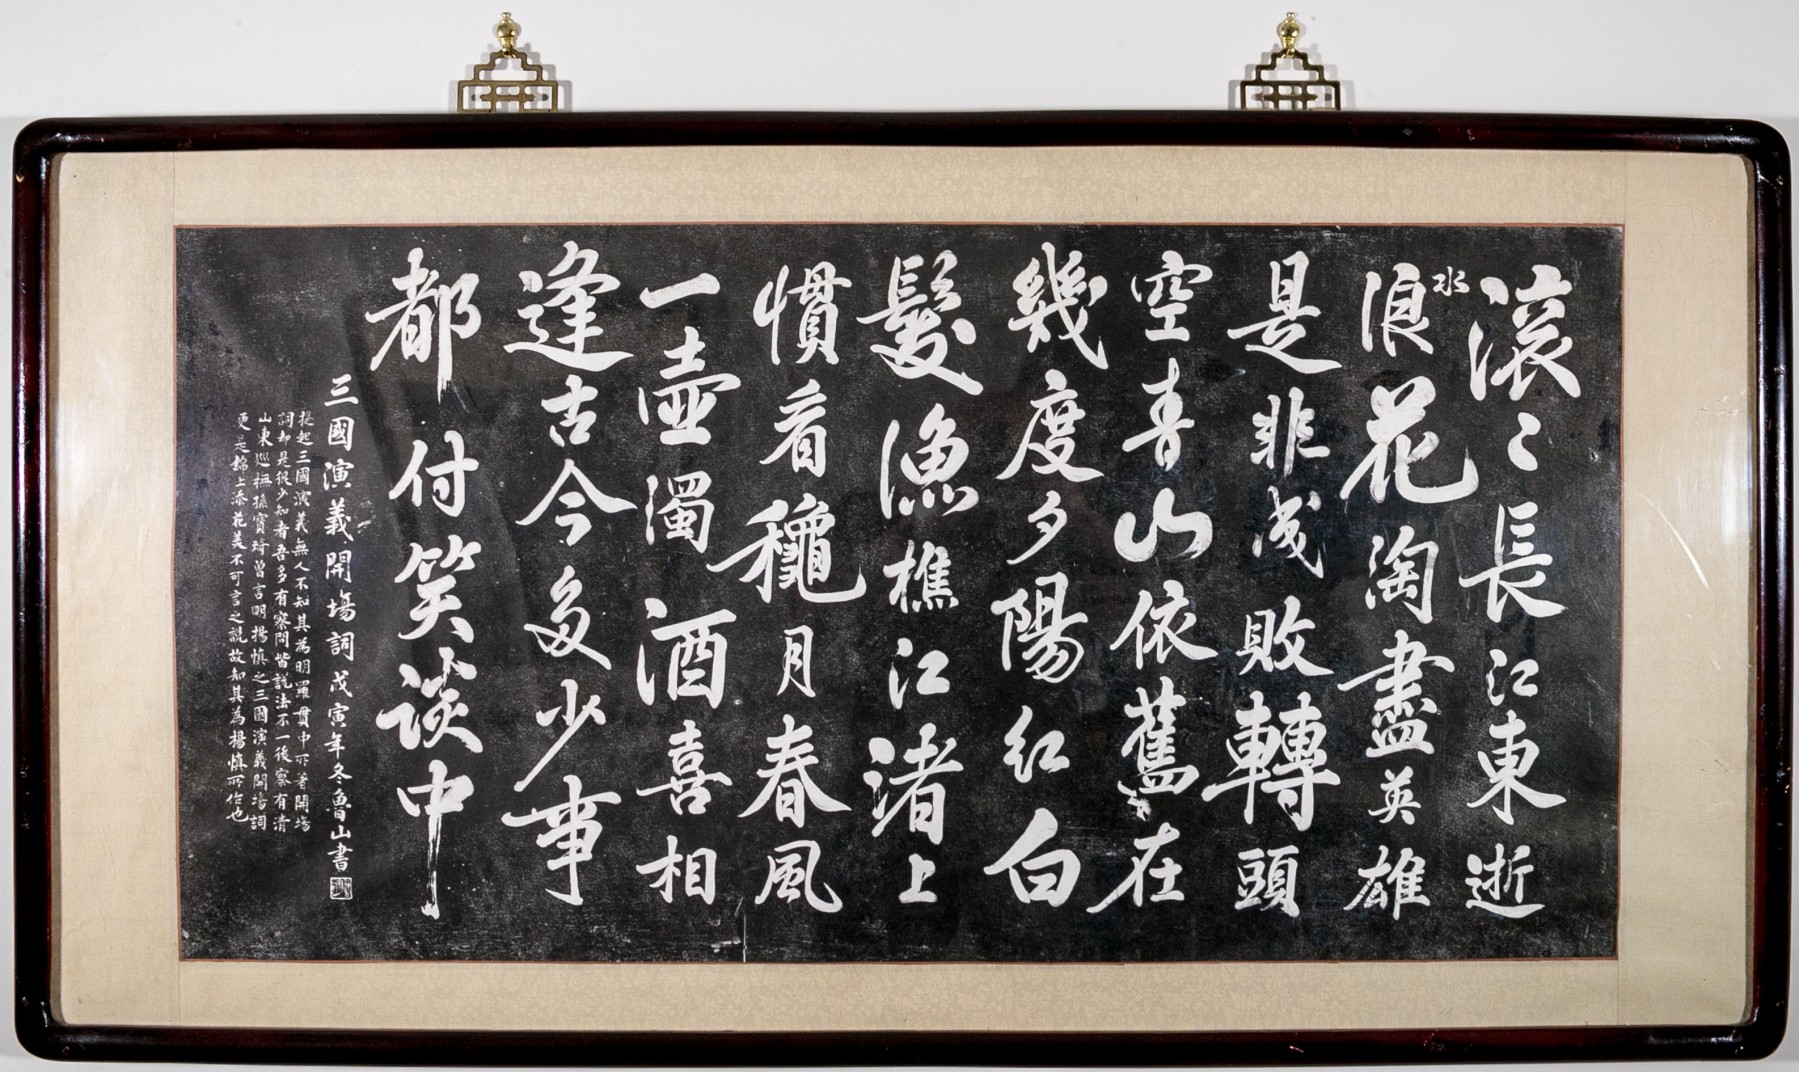 滚〻長江東逝
水
浪花淘盡英雄
是非成敗轉頭
空青山依舊在
幾度夕陽紅白
髮漁樵江渚上
慣看龝月春風
一壺濁酒喜相
逢古今多少事
都付笑談中
三國演義開場詞戊寅年冬魯山書
提起三國演義無人不知其為明羅貫中所著開場
詞却是很少知者吾多有察問皆說法不一後察有清
山東巡撫孫寶琦曾言明楊慎之三國演義開場詞
更是錦上添花美不可言之說故知其為楊慎所作也